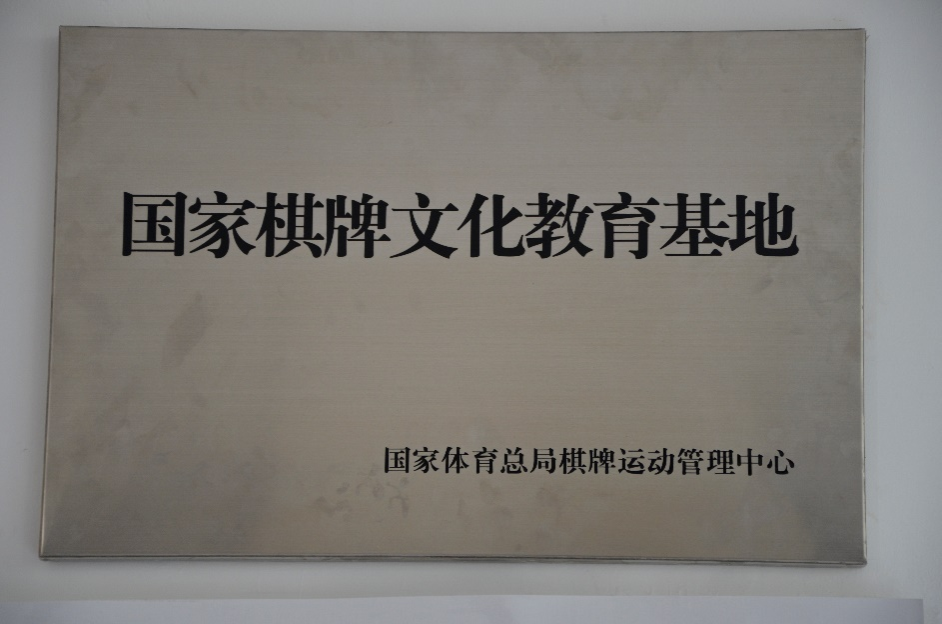 国家棋牌文化教育基地
国家体育总局棋牌运动管理中心